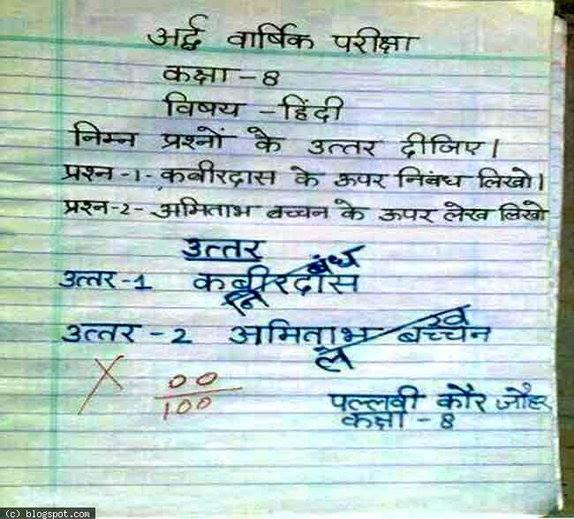 अर्द्ध वार्षिक परीक्षा
कक्षा - 8
विषय - हिंदी
निम्न प्रश्नों के उत्तर दीजिए।
प्रश्न -1- कबीरदास के ऊपर निबंध लिखो।
प्रश्न -2- अमिताभ बच्चन के ऊपर लेख लिखो
उत्तर
बंध
उत्तर -1 कबीरदास
नि
ख
उत्तर - 2 अमिताभ बच्चन
ले
X 00
100
पल्लवी कौर जौहर
कक्षा - 8
(c) blogspot.com